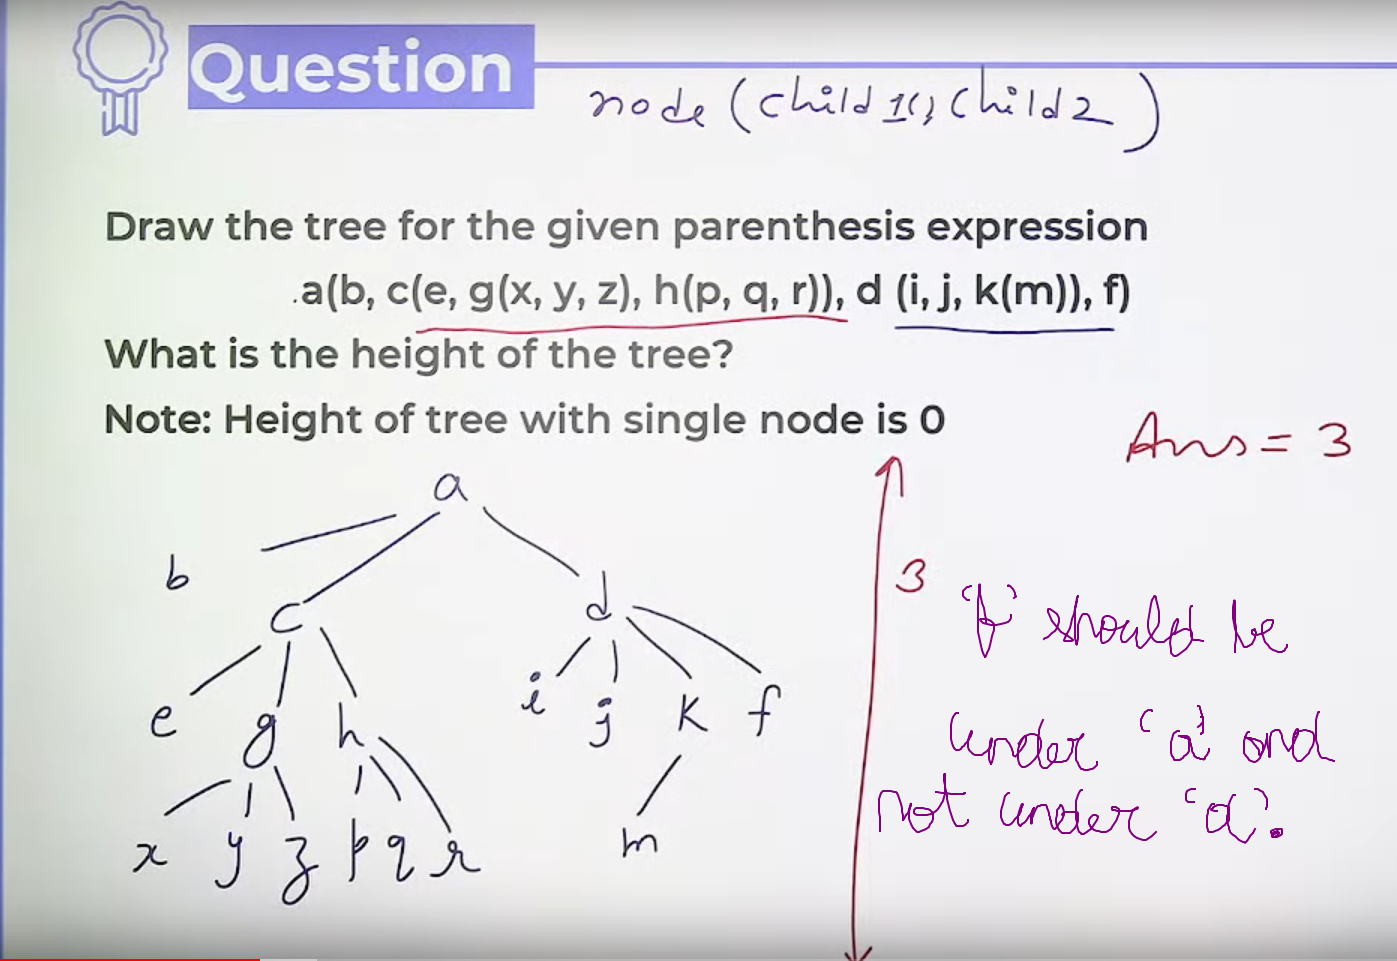 Question
node (child 1(), child 2 )
Draw the tree for the given parenthesis expression
.a(b, c(e, g(x, y, z), h(p, q, r)), d (i, j, k(m)), f)
What is the height of the tree?
Note: Height of tree with single node is 0
Ans = 3
a
b
c d
3
e g h i j k f
x y z p q r m
'f' should be
under 'a' and
not under 'd'.